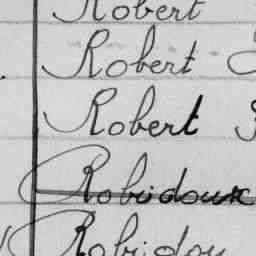 Robert
Robert
Robert
Robidoux
Robidou